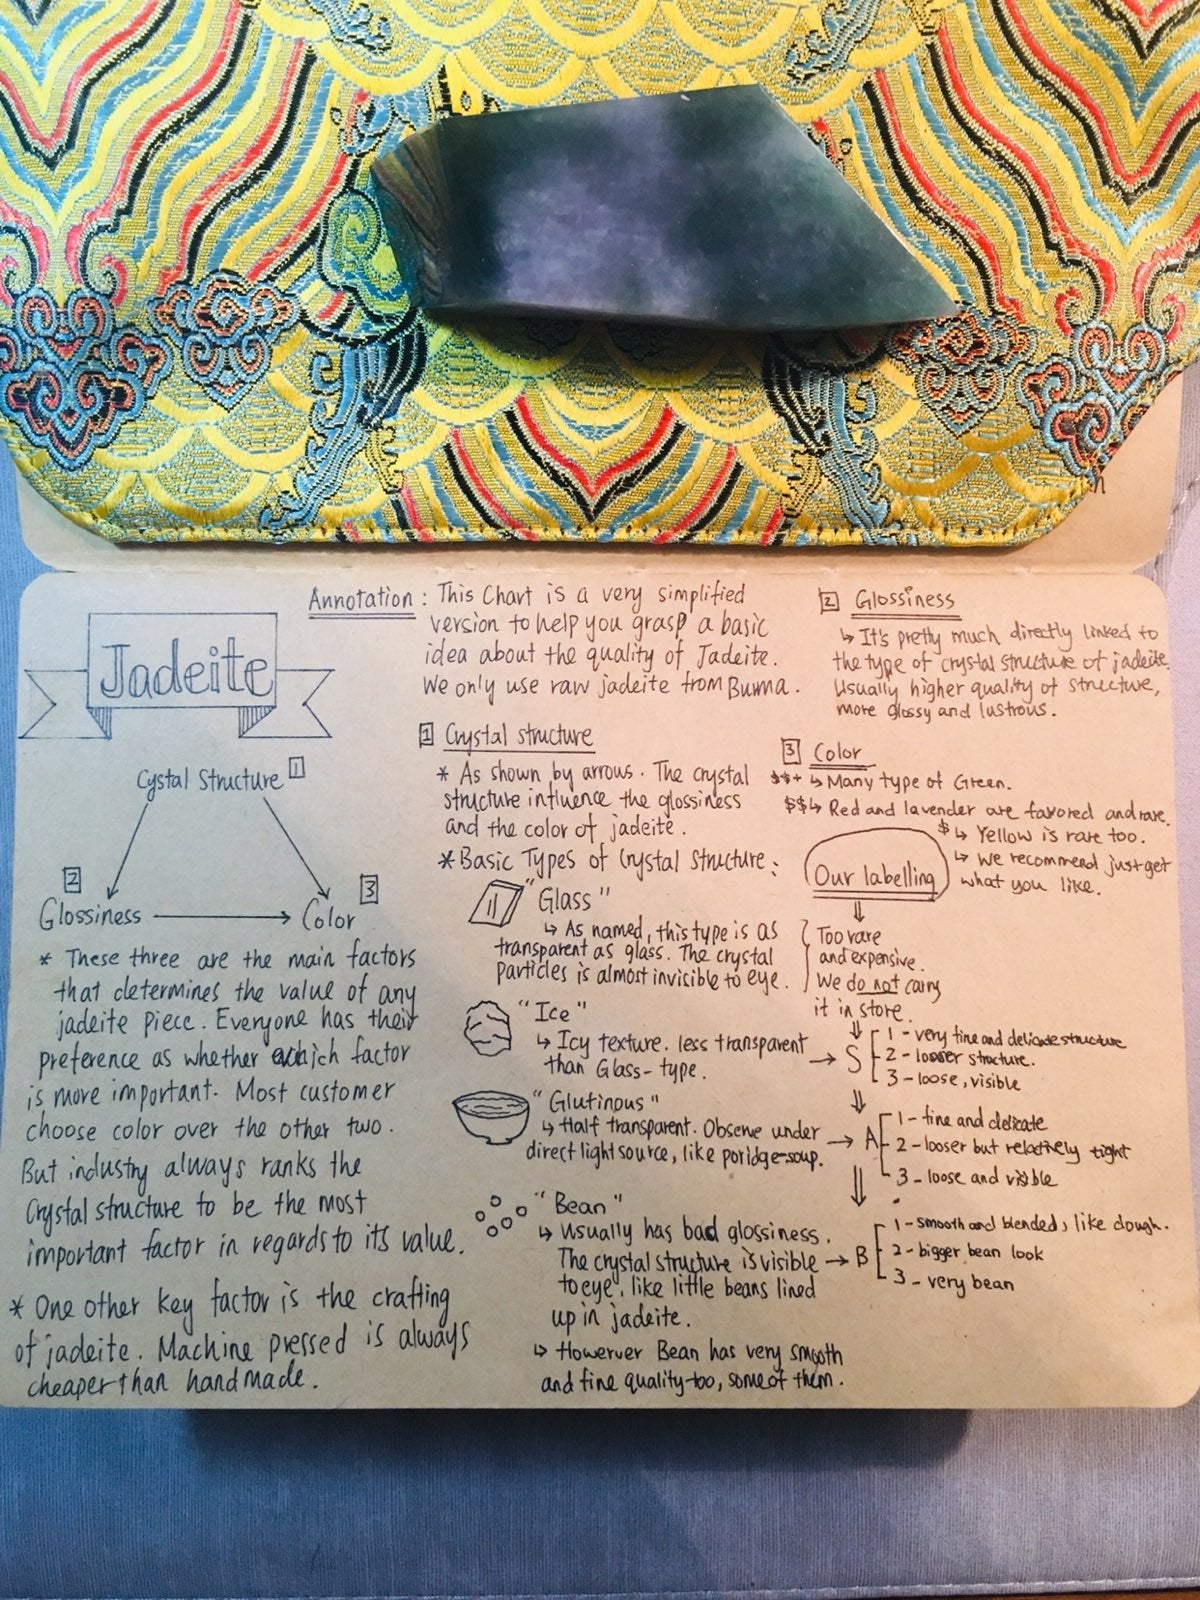 Jadeite
Cystal Structure 1
2
3
Glossiness
Color
* These three are the main factors
that determines the value of any
jadeite piece. Everyone has their
preference as whether which factor
is more important. Most customer
choose color over the other two.
But industry always ranks the
Crystal structure to be the most
important factor in regards to its value.
* One other key factor is the crafting
of jadeite. Machine pressed is always
cheaper than handmade.
Annotation: This Chart is a very simplified
version to help you grasp a basic
idea about the quality of Jadeite.
We only use raw jadeite from Burma.
1 Crystal structure
* As shown by arrows. The crystal
structure influence the glossiness
and the color of jadeite.
* Basic Types of Crystal Structure:
"Glass"
↳ As named, this type is as
transparent as glass. The crystal
particles is almost invisible to eye.
"Ice"
↳ Icy texture. less transparent
than Glass-type.
"Glutinous"
↳ Half transparent. Observe under
direct light source, like poridge-soup.
"Bean"
↳ Usually has bad glossiness.
The crystal structure is visible
to eye, like little beans lined
up in jadeite.
↳ Howerver Bean has very smooth
and fine quality too, some of them.
2 Glossiness
↳ It's pretty much directly linked to
the type of crystal structure of jadeite.
Usually higher quality of structure,
more glossy and lustrous.
3 Color
$$+ ↳ Many type of Green.
$$ ↳ Red and lavender are favored and rare.
$ ↳ Yellow is rare too.
↳ We recommend just get
what you like.
Our labelling
Too rare
and expensive.
We do not carry
it in store.
S
1 - very fine and delicate structure
2 - looser structure.
3 - loose, visible
A
1 - fine and delicate
2 - looser but relatively tight
3 - loose and visible
B
1 - smooth and blended, like dough.
2 - bigger bean look
3 - very bean